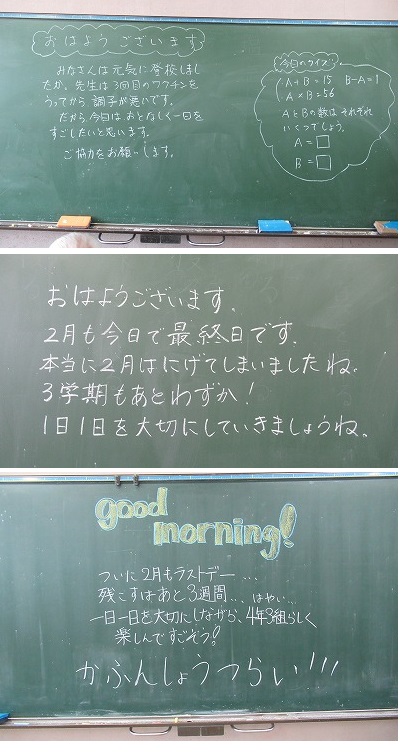 おはようございます
みなさんは元気に登校しまし
たか。先生は3回目のワクチンを
うってから、調子が悪いです。
だから今日はおとなしく一日を
すごしたいと思います。
ご協力をお願いします。
今日のクイズ
A+B=15 B-A=1
A×B=56
AとBの数は それぞれ
いくつでしょう。
A=□
B=□
おはようございます。
2月も今日で最終日です。
本当に2月はにげてしまいましたね。
3学期もあとわずか!
1日1日を大切にしていきましょうね。
good
morning!
ついに2月もラストデー…
残こすはあと3週間…はやい…
一日一日を大切にしながら、4年3組らしく
楽しんですごそう!
かふんしょうつらい!!!